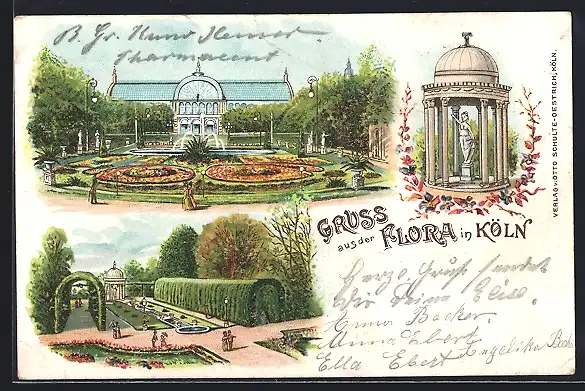 B. Gr. Hans Kleiner
Pharmaceut
GRUSS
aus der FLORA in KÖLN
VERLAG V. OTTO SCHULTE-OESTRICH, KÖLN.
Herzl. Gruß sendet
Dir Deine Elise.
Anna Backer,
Anna Ebert
Ella Ebert Angelika